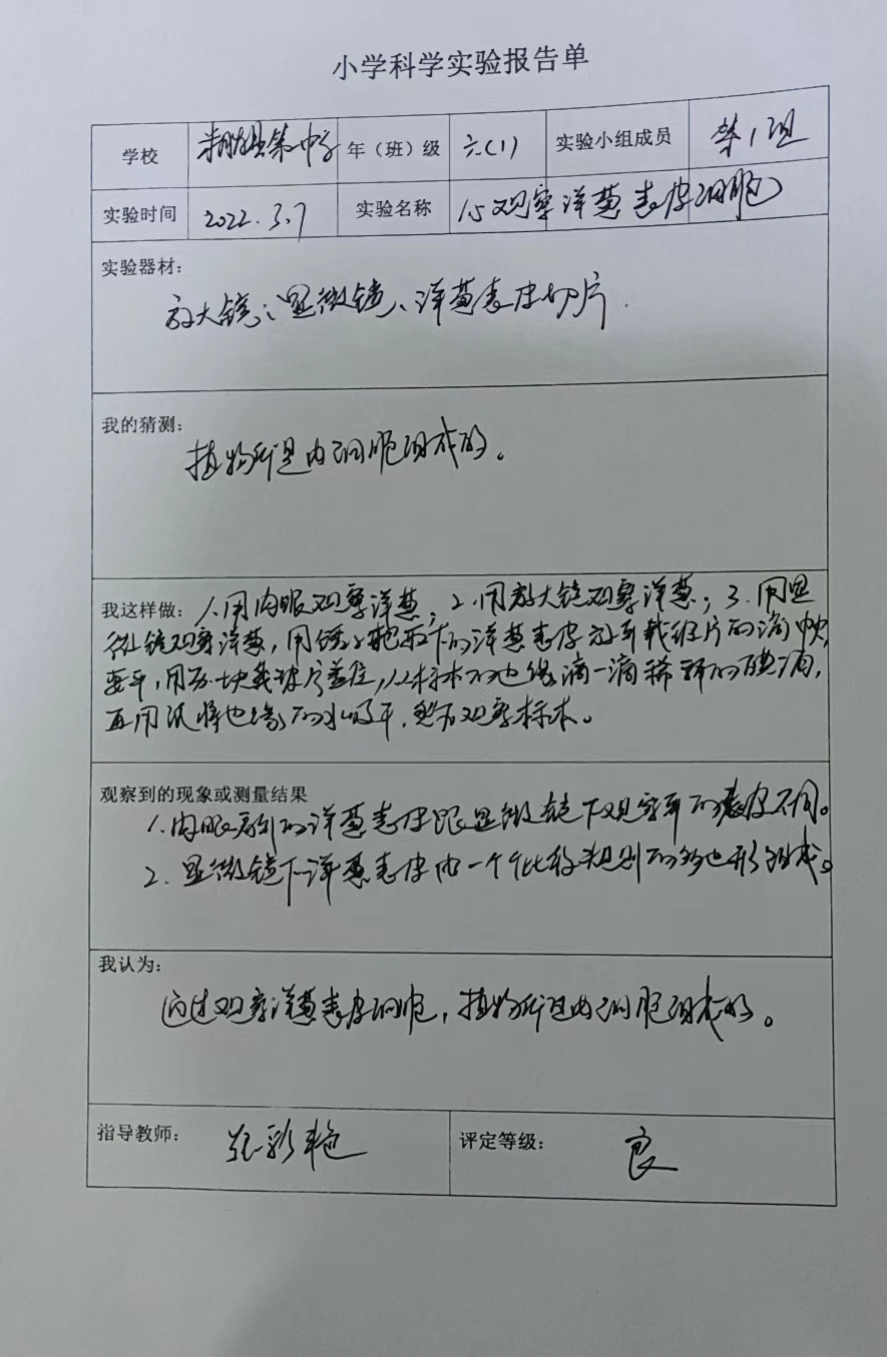 小学科学实验报告单
学校 年（班）级 六(1) 实验小组成员 第1组
实验时间 2022.3.7 实验名称 观察洋葱表皮细胞
实验器材：
放大镜、显微镜、洋葱表皮切片.
我的猜测：
植物是由细胞组成的。
我这样做： 1.用肉眼观察洋葱；2.用放大镜观察洋葱；3.用显
微镜观察洋葱，用镊子把取下的洋葱表皮放到载玻片的滴中央
要平，用另一块载玻片盖住，从标本的边缘滴一滴稀释的碘酒，
再用纸将边缘的水吸干，然后观察标本。
观察到的现象或测量结果
1.肉眼看到的洋葱表皮跟显微镜下观察到的表皮不同。
2.显微镜下洋葱表皮由一个个比较规则的多边形组成。
我认为：
通过观察洋葱表皮细胞，植物是由细胞组成的。
指导教师： 彩艳 评定等级： 良